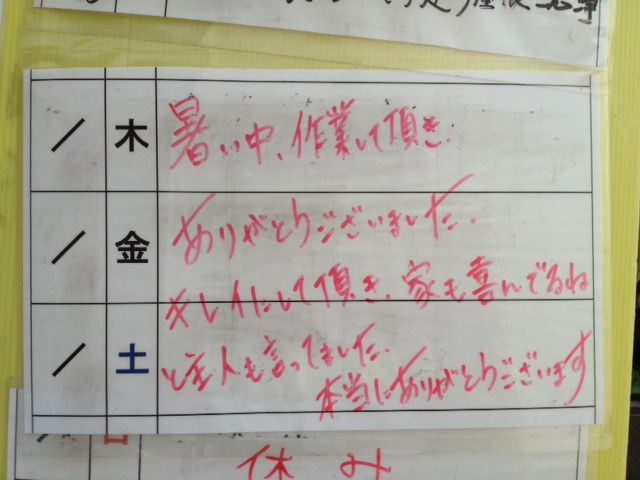 ／ 木 暑い中、作業して頂き
／ 金 ありがとうございました.
キレイにして頂き、家も喜んでるね
／ 土 と主人も言ってました.
本当にありがとうございます
／ 日
休み